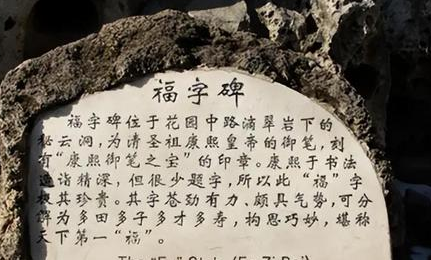 福字碑
福字碑位于花园中路滴翠岩下的
秘云洞，为清圣祖康熙皇帝的御笔，刻
有“康熙御笔之宝”的印章。康熙于书法
造诣精深，但很少题字，所以此“福”字
极其珍贵。其字苍劲有力、颇具气势，可分
解为多田多子多才多寿，构思巧妙，堪称
天下第一“福”。
The "Fu" Stele (Fu Zi Bei)